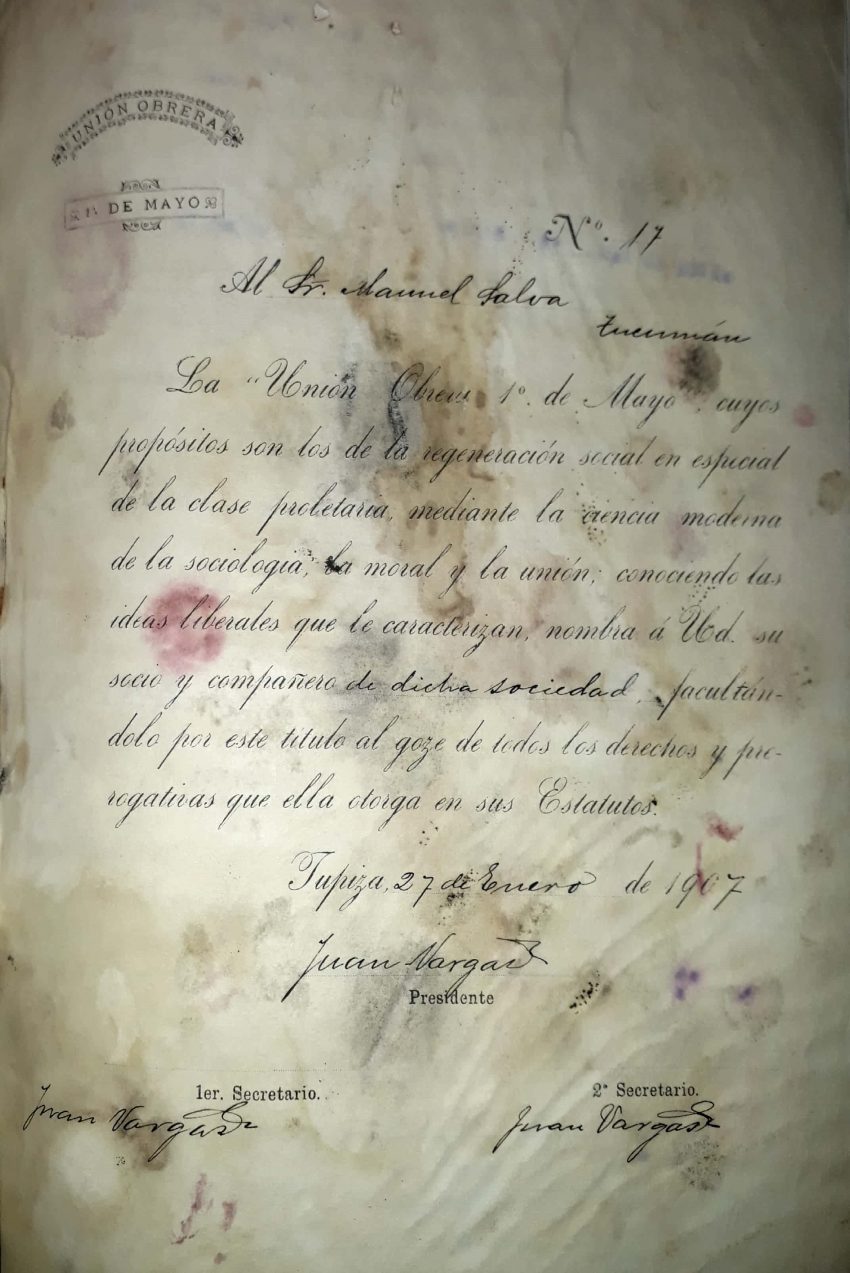 UNIÓN OBRERA
1º DE MAYO
Nº. 17
Al Sr. Manuel Salva
Tucumán
La "Unión Obrera 1º. de Mayo", cuyos
propósitos son los de la regeneración social en especial
de la clase proletaria, mediante la ciencia moderna
de la sociología, la moral y la unión; conociendo las
ideas liberales que le caracterizan, nombra á Ud. su
socio y compañero de dicha sociedad, facultán-
dolo por este título al goze de todos los derechos y pre-
rogativas que ella otorga en sus Estatutos.
Tupiza, 27 de Enero de 1907
Juan Vargas
Presidente
1er. Secretario.
2º Secretario.
Juan Vargas
Juan Vargas